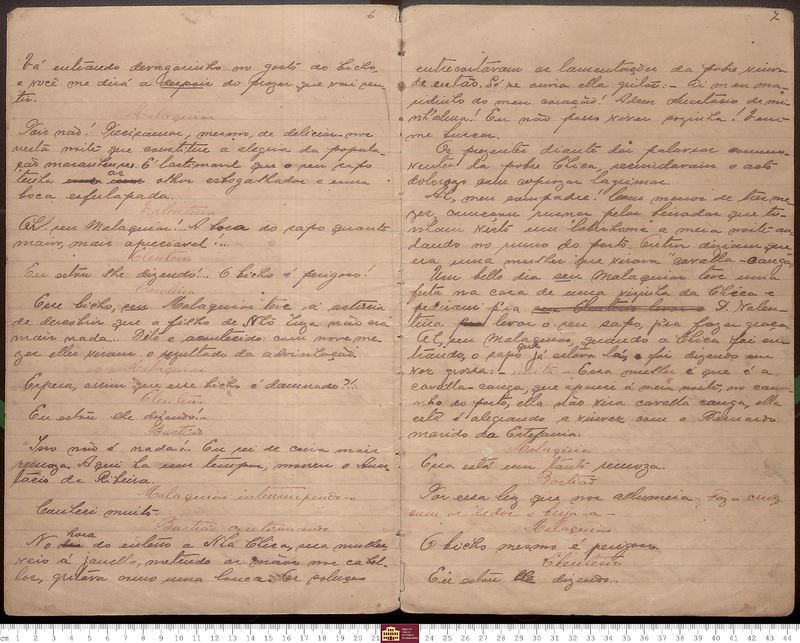 6
Vá entrando devagarinho no gosto do bicho,
e você me dirá a despois do prazer que vai sen-
tir.
Malaquias
Pois não! Precisamos, mesmo, de deliciar-nos
nesta noite que constitue a alegria da popula-
ção maranhense. É lastimavel que o seu sapo
tenha os olhos esbogalhados e uma
boca esfulapada.
Valentina
Oh! seu Malaquias... A boca do sapo quanto
maior, mais apreciavel...
Eleuterio
Eu estou lhe dizendo!... O bicho é perigoso!
Esse bicho, seu Malaquias teve a astucia
de descobrir que a filha de Nhô Luza não era
mais nada... Dito e acontecido: com nove me-
zes elles viram o resultado da advinhação.
Malaquias
Espera, assim que esse bicho é damnado?!..
Eleuterio
Eu estou lhe dizendo!..
Bastião
Isso não é nada... Eu sei de coisa mais
remoza. Aqui ha um tempo, morreu o Anas-
tacio da Ribeira.
Malaquias interrompendo-o
Conheci muito.
Bastião continuando
No hora do enterro a Nhá Chica, sua mulher,
veio á janella, mettendo as mãos nos cabel-
los, gritava como uma louca. Os soluços
7
entrecortavam as lamentações da pobre viuva
de então. Só se ouvia ella gritar: - Ai meu ma-
ridinho do meu coração! Adeus Anastacio de mi-
nh'alma! Eu não posso viver sozinha! Vem
me buscar.
Os presentes diante das palavras commo-
ventes da pobre Chica, secundavam o acto
doloroso sem espirrar lagrimas.
Ah, meu compadre! Com menos de tres me-
zes, comecou rusnar pelos sobrados que ti-
nham visto um lobishome a meia noite an-
dando no rumo do porto. Outros diziam que
era uma mulher que virava "cavalla-canga"
Um bello dia seu Malaquias teve uma
festa na casa de uma vizinha da Chica e
pediram p'ra D. Valen-
tina levar o seu sapo, p'ra fazer graça.
Ah, seu Malaquias, quando a Chica foi en-
trando, o sapo que já estava lá, foi dizendo em
voz grossa: - Essa mulher é que é a
cavalla-canga, que aparece á meia noite, no cami-
nho do porto, ella não vira cavalla canga, ella
está é alegrando a viuvez com o Fernando
marido da Estefania.
Malaquias
Essa está um tanto remoza.
Bastião
Por essa luz que nos allumeia - Faz a cruz
com os dedos e beija-a -
Malaquias
O bicho mesmo é perigoso.
Eleuterio
Eu estou lhe dizendo...